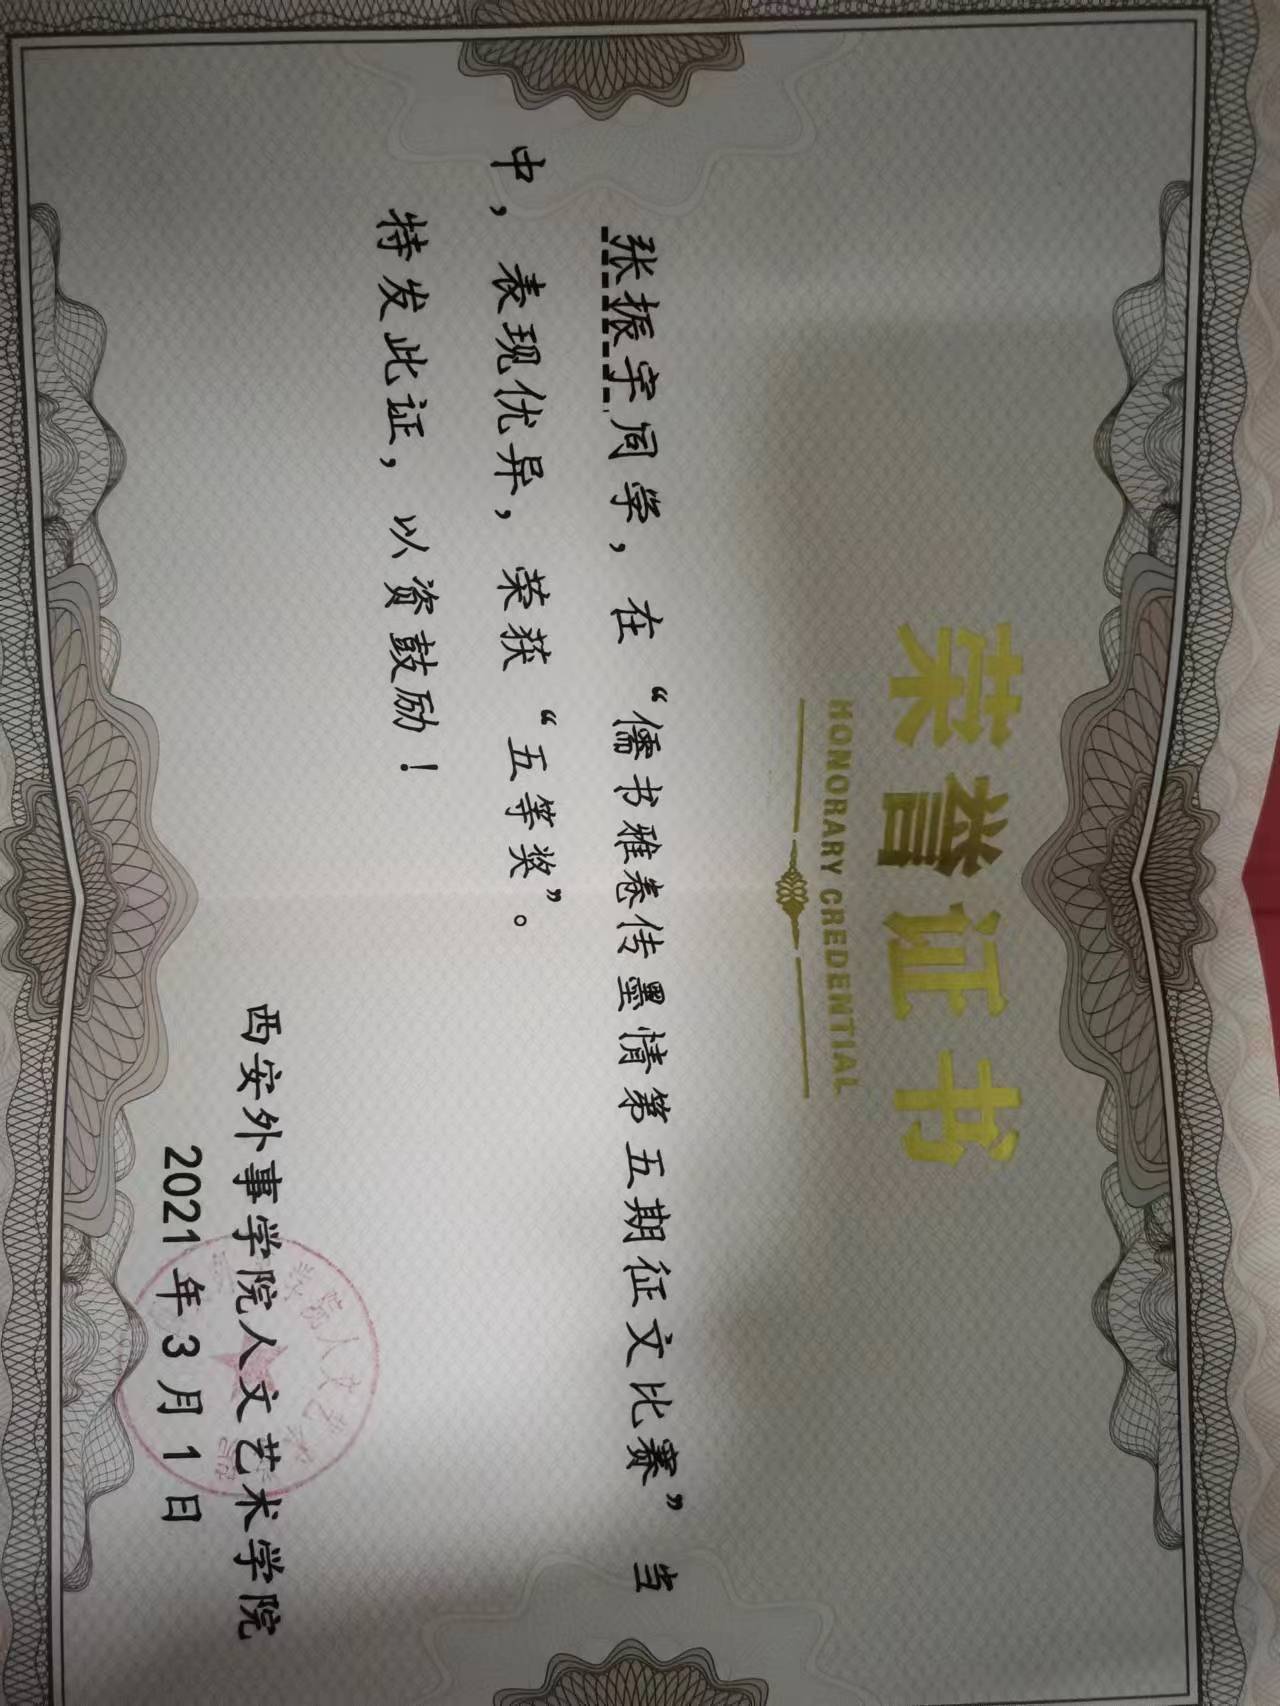 荣誉证书
HONORARY CREDENTIAL
张振宇同学，在“儒书雅卷传墨情第五期征文比赛”当
中，表现优异，荣获“五等奖”。
特发此证，以资鼓励！
西安外事学院人文艺术学院
2021年3月1日
学院人文艺术学院